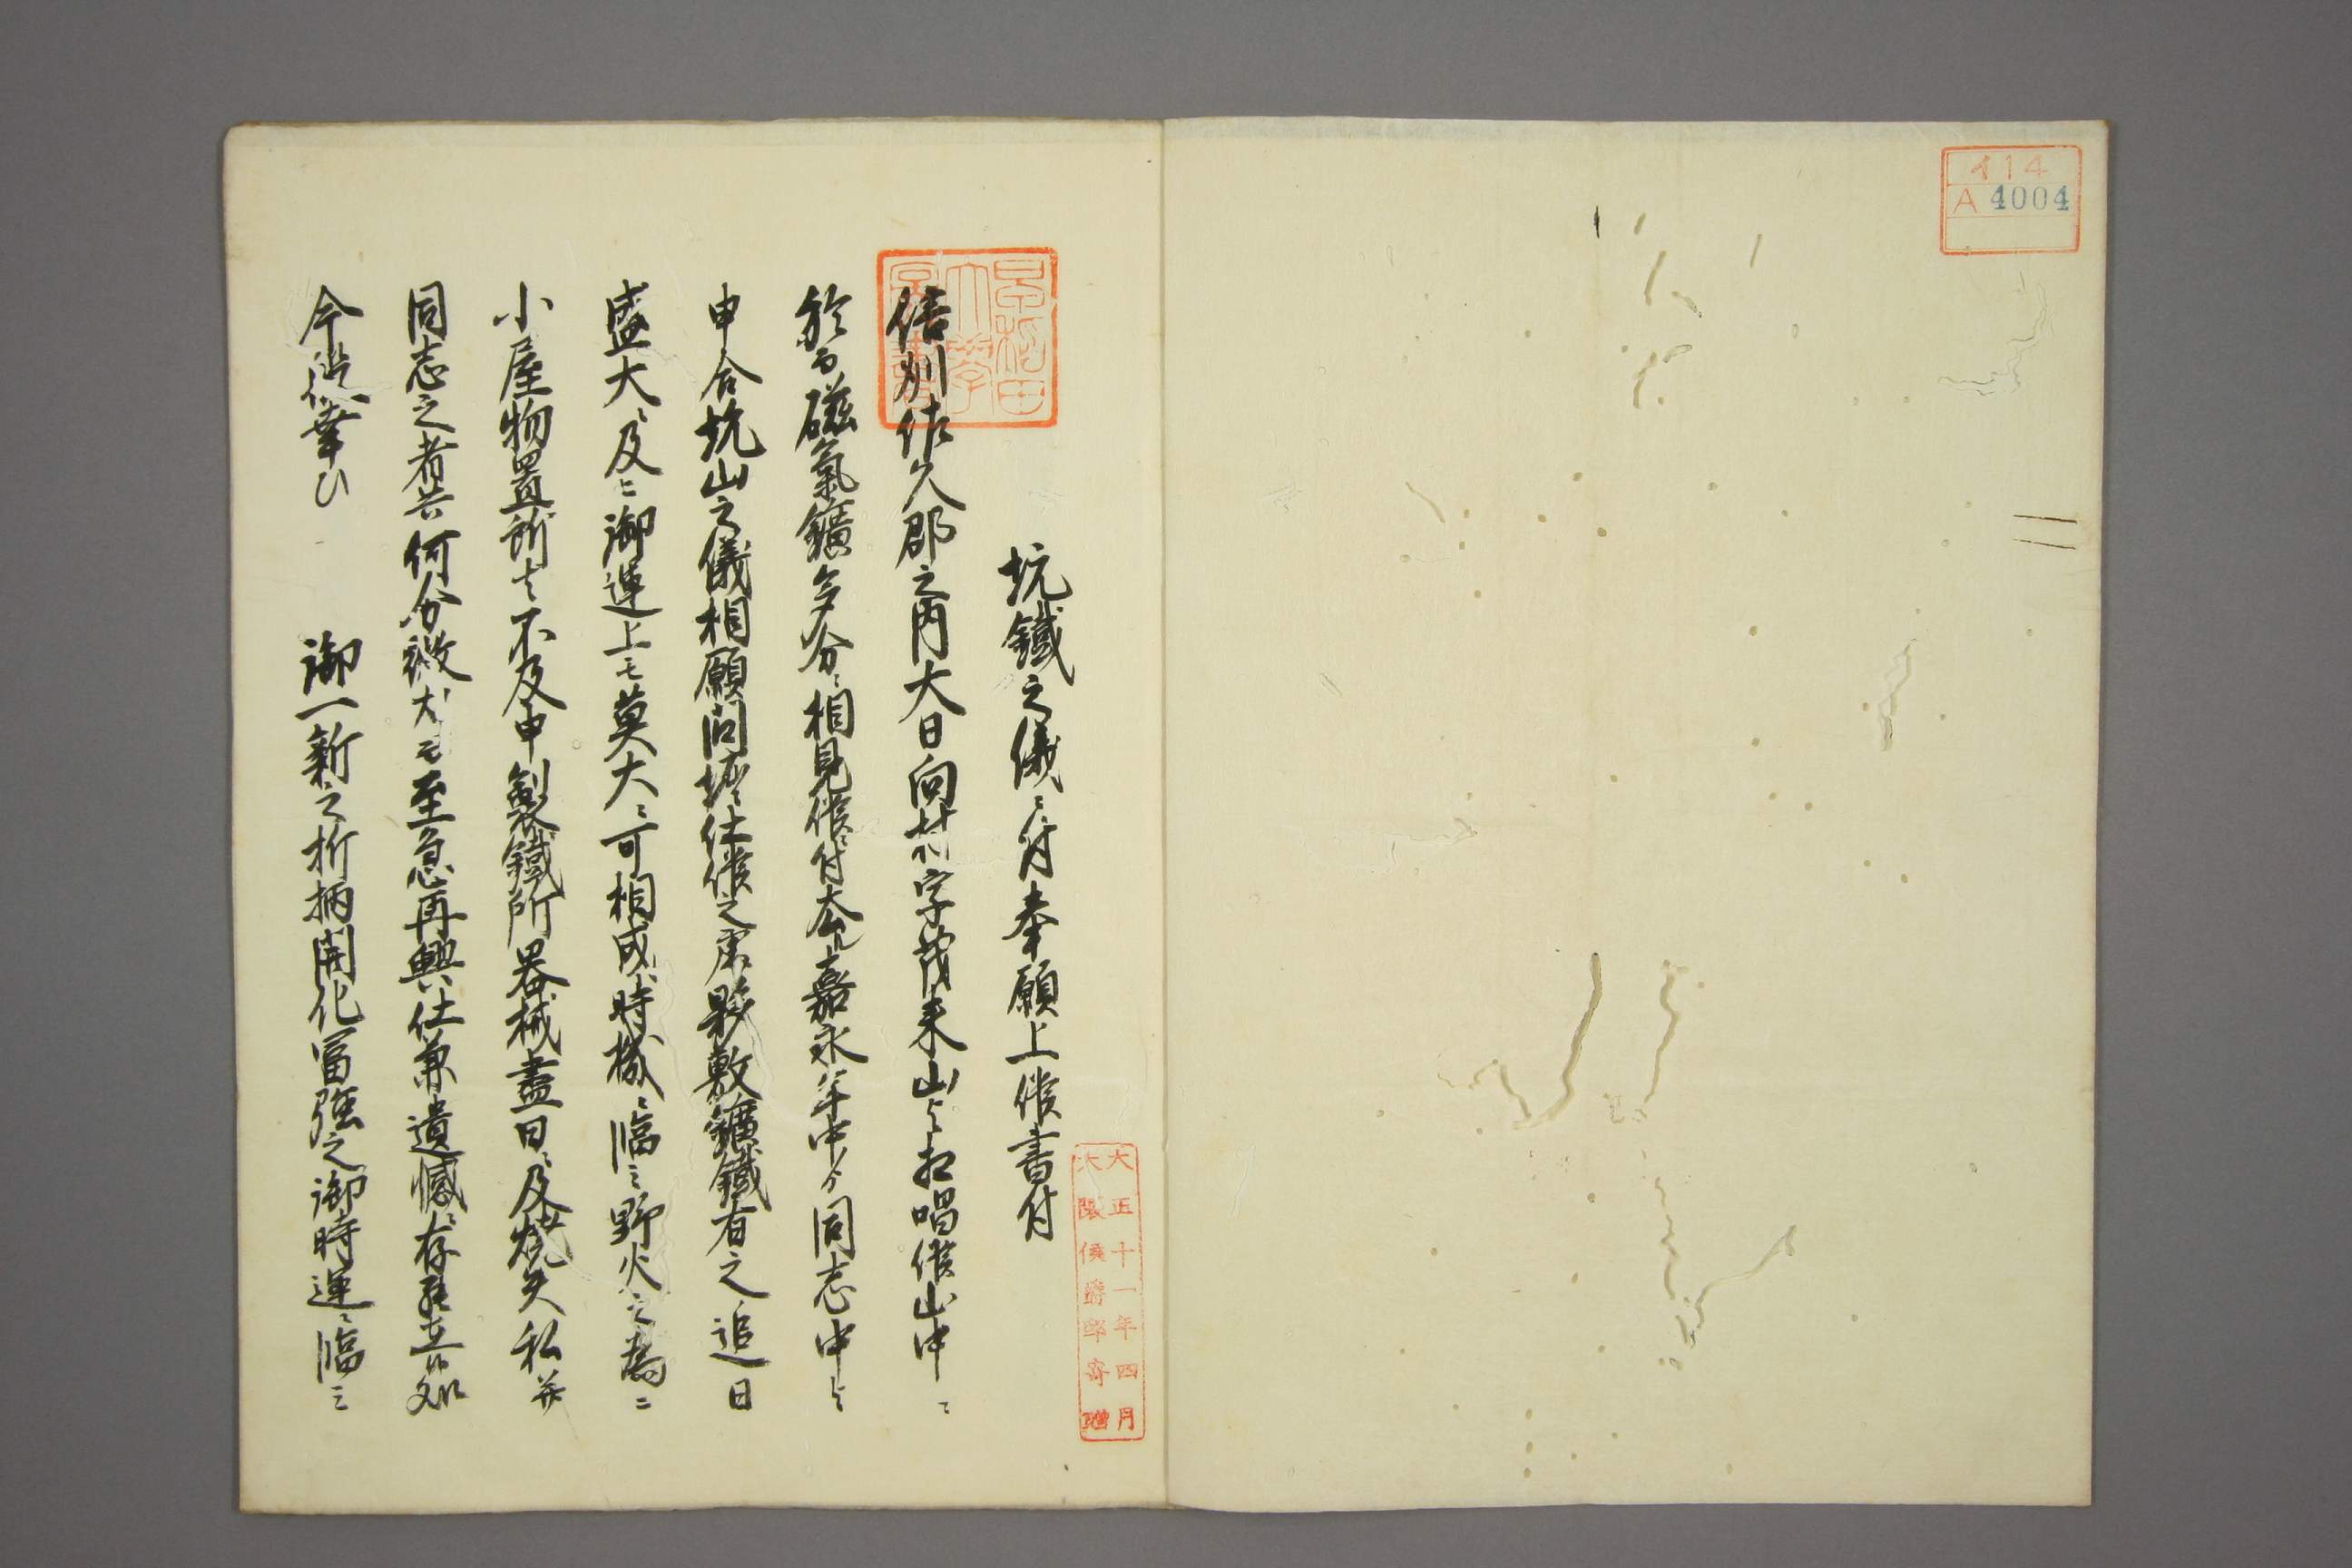 イ14
A 4004
大正十一年四月
大隈侯爵邸寄贈
早稲田大學圖書
坑鐵之儀ニ付奉願上候書付
信州佐久郡之内大日向村字茂来山与相唱候山中ニ
於而磁氣鑛多分ニ相見候ニ付嘉永年中ゟ同志中与
申合坑山之儀相願問堀仕候之處夥敷鑛鐵有之追日
盛大ニ及ヒ御運上モ莫大ニ可相成時機ニ臨ミ野火之為ニ
小屋物置所者不及申製鐵所器械盡日ニ及焼失私并
同志之者共何分微力モ至急再興仕兼遺憾ニ存
今幸ひ 御一新之折柄開化冨強之御時運ニ臨ミ